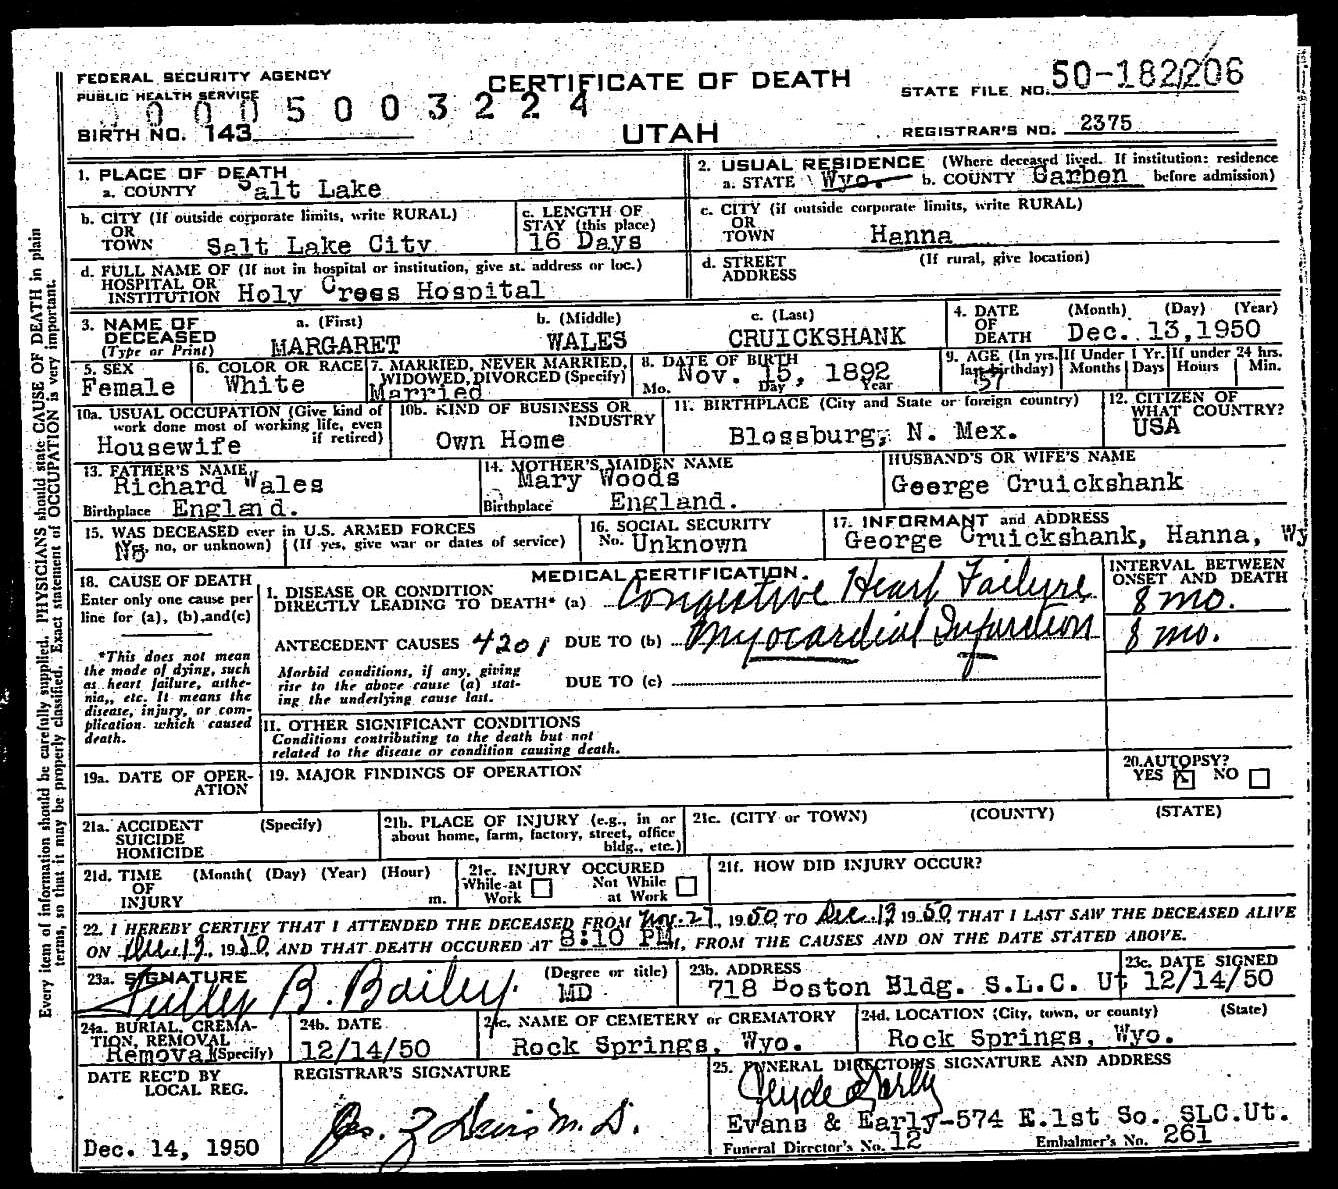 FEDERAL SECURITY AGENCY
PUBLIC HEALTH SERVICE
CERTIFICATE OF DEATH
STATE FILE NO. 50-182206
0005003224
BIRTH NO. 143
UTAH
REGISTRAR'S NO. 2375
1. PLACE OF DEATH
a. COUNTY Salt Lake
2. USUAL RESIDENCE (Where deceased lived. If institution: residence before admission)
a. STATE Wyo. b. COUNTY Carbon
b. CITY (If outside corporate limits, write RURAL)
OR
TOWN Salt Lake City
c. LENGTH OF
STAY (this place)
16 Days
c. CITY (if outside corporate limits, write RURAL)
OR
TOWN Hanna
d. FULL NAME OF (If not in hospital or institution, give st. address or loc.)
HOSPITAL OR
INSTITUTION Holy Cross Hospital
d. STREET
ADDRESS
(If rural, give location)
3. NAME OF
DECEASED
(Type or Print)
a. (First)
MARGARET
b. (Middle)
WALES
c. (Last)
CRUICKSHANK
4. DATE
OF
DEATH
(Month) (Day) (Year)
Dec. 13,1950
5. SEX
Female
6. COLOR OR RACE
White
7. MARRIED, NEVER MARRIED,
WIDOWED, DIVORCED (Specify)
Married
8. DATE OF BIRTH
Nov. 15, 1892
Mo. Day Year
9. AGE (In yrs.
last birthday)
57
If Under 1 Yr.
Months Days
If under 24 hrs.
Hours Min.
10a. USUAL OCCUPATION (Give kind of
work done most of working life, even
if retired)
Housewife
10b. KIND OF BUSINESS OR
INDUSTRY
Own Home
11. BIRTHPLACE (City and State or foreign country)
Blossburg, N. Mex.
12. CITIZEN OF
WHAT COUNTRY?
USA
13. FATHER'S NAME
Richard Wales
Birthplace England.
14. MOTHER'S MAIDEN NAME
Mary Woods
Birthplace England.
HUSBAND'S OR WIFE'S NAME
George Cruickshank
15. WAS DECEASED ever in U.S. ARMED FORCES
No
(Yes, no, or unknown) (If yes, give war or dates of service)
16. SOCIAL SECURITY
No. Unknown
17. INFORMANT and ADDRESS
George Cruickshank, Hanna, Wy
18. CAUSE OF DEATH
Enter only one cause per
line for (a), (b), and (c)
*This does not mean
the mode of dying, such
as heart failure, asthe-
nia,, etc. It means the
disease, injury, or com-
plication which caused
death.
MEDICAL CERTIFICATION
INTERVAL BETWEEN
ONSET AND DEATH
I. DISEASE OR CONDITION
DIRECTLY LEADING TO DEATH* (a) Congestive Heart Failure 8 mo.
ANTECEDENT CAUSES 4201 DUE TO (b) Myocardial Infarction 8 mo.
Morbid conditions, if any, giving
rise to the above cause (a) stat-
ing the underlying cause last.
DUE TO (c)
II. OTHER SIGNIFICANT CONDITIONS
Conditions contributing to the death but not
related to the disease or condition causing death.
19a. DATE OF OPER-
ATION
19. MAJOR FINDINGS OF OPERATION
20. AUTOPSY?
YES X NO
21a. ACCIDENT
SUICIDE
HOMICIDE
(Specify)
21b. PLACE OF INJURY (e.g., in or
about home, farm, factory, street, office
bldg., etc.)
21c. (CITY or TOWN) (COUNTY) (STATE)
21d. TIME
OF
INJURY
(Month( (Day) (Year) (Hour)
m.
21e. INJURY OCCURED
While at
Work
Not While
at Work
21f. HOW DID INJURY OCCUR?
22. I HEREBY CERTIFY THAT I ATTENDED THE DECEASED FROM Nov. 27, 1950, TO Dec. 13 1950 THAT I LAST SAW THE DECEASED ALIVE
ON Dec. 13, 1950, AND THAT DEATH OCCURED AT 8:10 PM, FROM THE CAUSES AND ON THE DATE STATED ABOVE.
23a. SIGNATURE
Fuller B. Bailey.
(Degree or title)
MD
23b. ADDRESS
718 Boston Bldg. S.L.C. Ut
23c. DATE SIGNED
12/14/50
24a. BURIAL, CREMA-
TION, REMOVAL
Removal (Specify)
24b. DATE
12/14/50
24c. NAME OF CEMETERY or CREMATORY
Rock Springs, Wyo.
24d. LOCATION (City, town, or county) (State)
Rock Springs, Wyo.
DATE REC'D BY
LOCAL REG.
Dec. 14, 1950
REGISTRAR'S SIGNATURE
25. FUNERAL DIRECTOR'S SIGNATURE AND ADDRESS
Clyde Early
Evans & Early-574 E.1st So. SLC.Ut.
Funeral Director's No. 12 Embalmer's No. 261
Every item of information should be carefully supplied. PHYSICIANS should state CAUSE OF DEATH in plain
terms, so that it may be properly classified. Exact statement of OCCUPATION is very important.